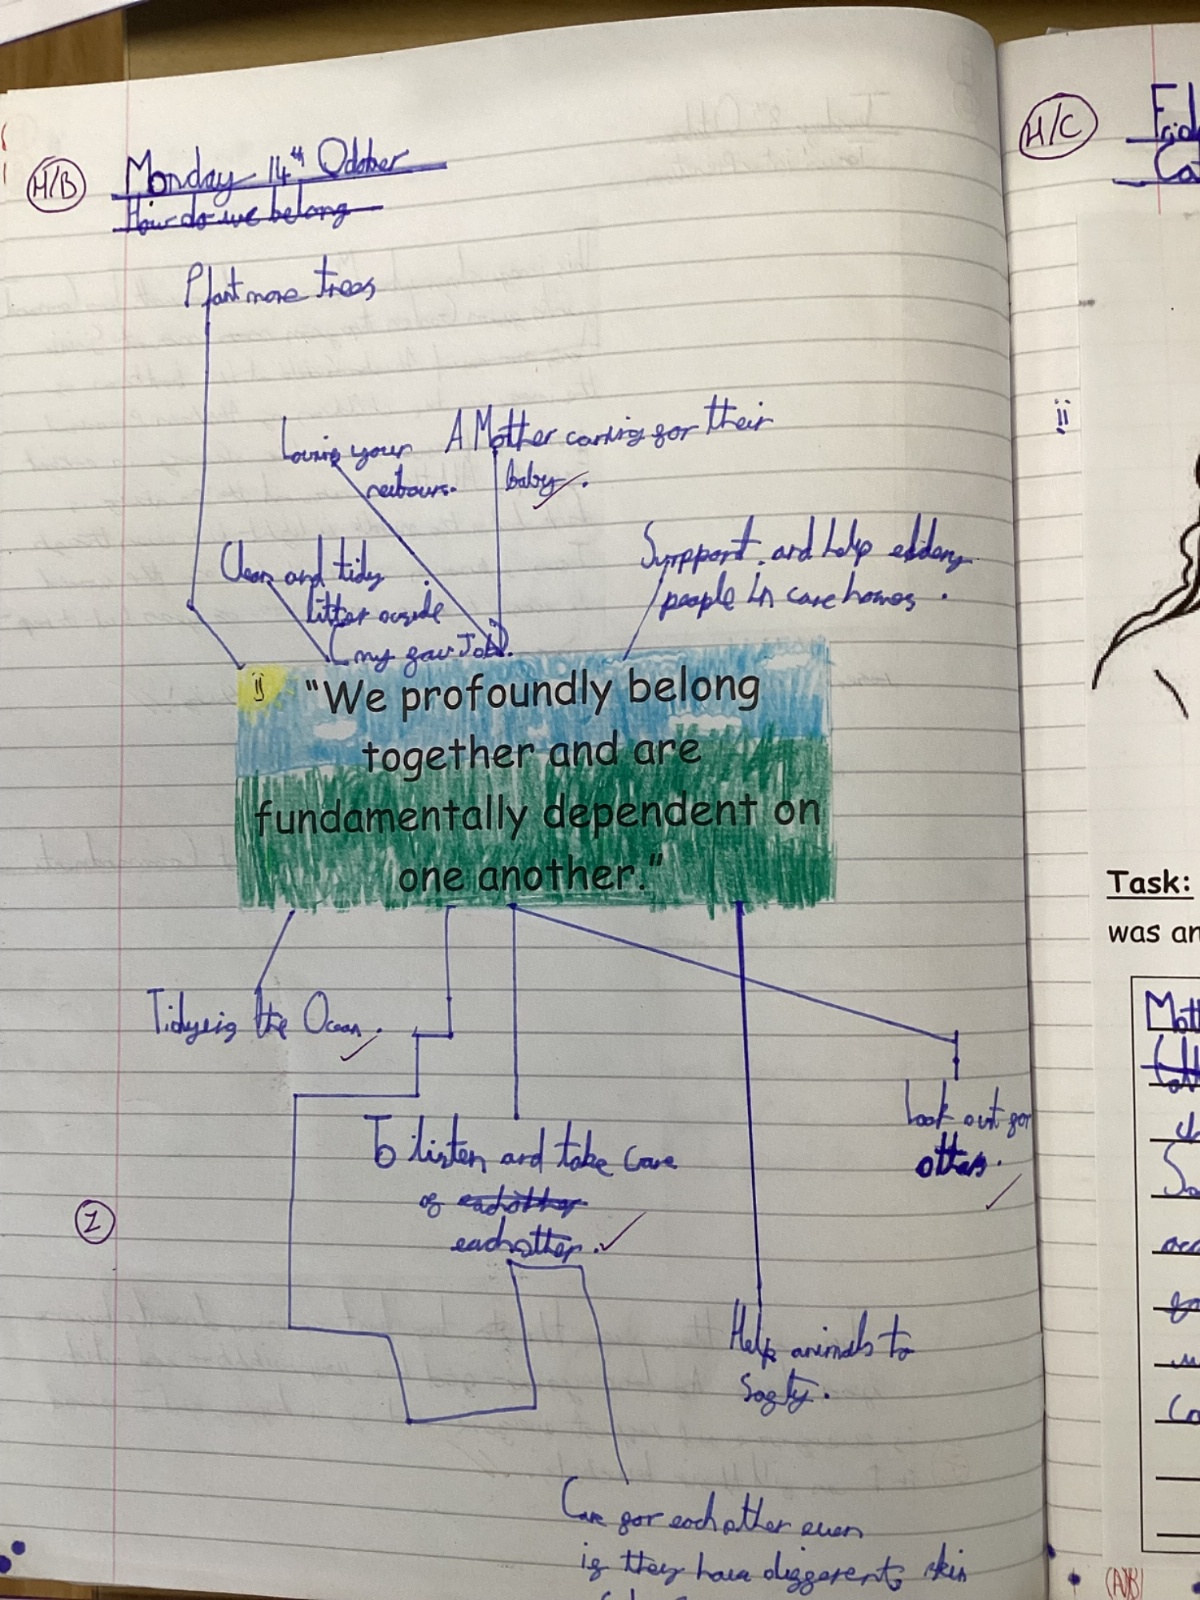 H/B
Monday 14th October
How do we belong
Plant more trees
Loving your
neibours.
A Mother caring for their
baby.
Clean and tidy
litter
(my fav Job).
Support and help
people in care homes.
"We profoundly belong
together and are
fundamentally dependent on
one another."
the Ocean.
To listen and take care
of eachother
eachother.
Look out for
others.
Help animals to
safty.
Care for eachother even
if they have differernt skin
H/C
Task:
was an